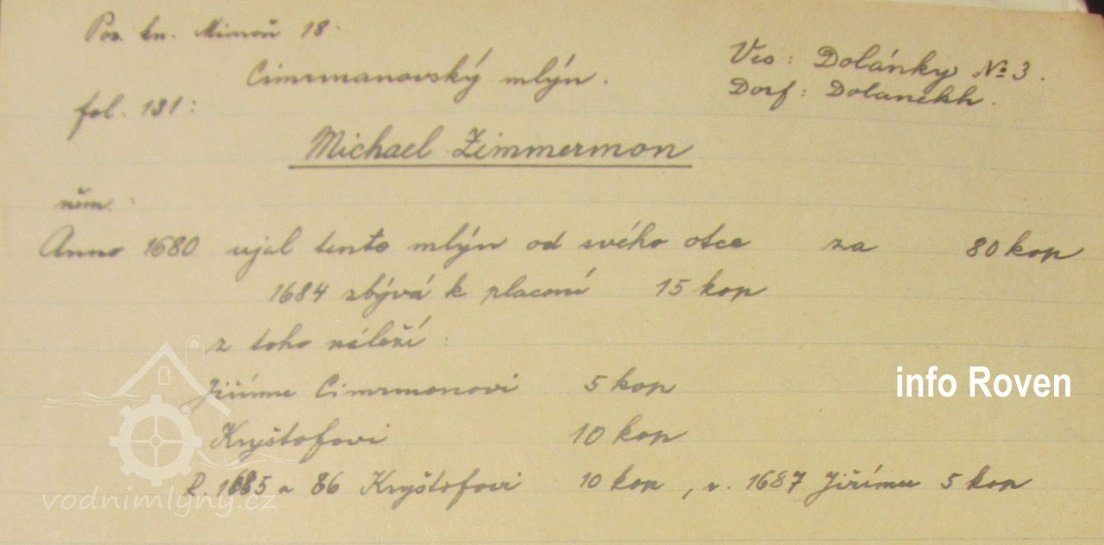 Poz. kn. Mimoň 18.
Cimrmanovský mlýn.
Ves: Dolánky № 3.
Dorf: Dolanekh.
fol. 131:
Michael Zimmermon
něm.
Anno 1680 ujal tento mlýn od svého otce za 80 kop
1684 zbývá k placení 15 kop
z toho náleží:
Jiřímu Cimrmonovi 5 kop
info Roven
Kryštofovi 10 kop
R. 1685 a 86 Kryštofovi 10 kop, r. 1687 Jiřímu 5 kop
vodnimlyny.cz